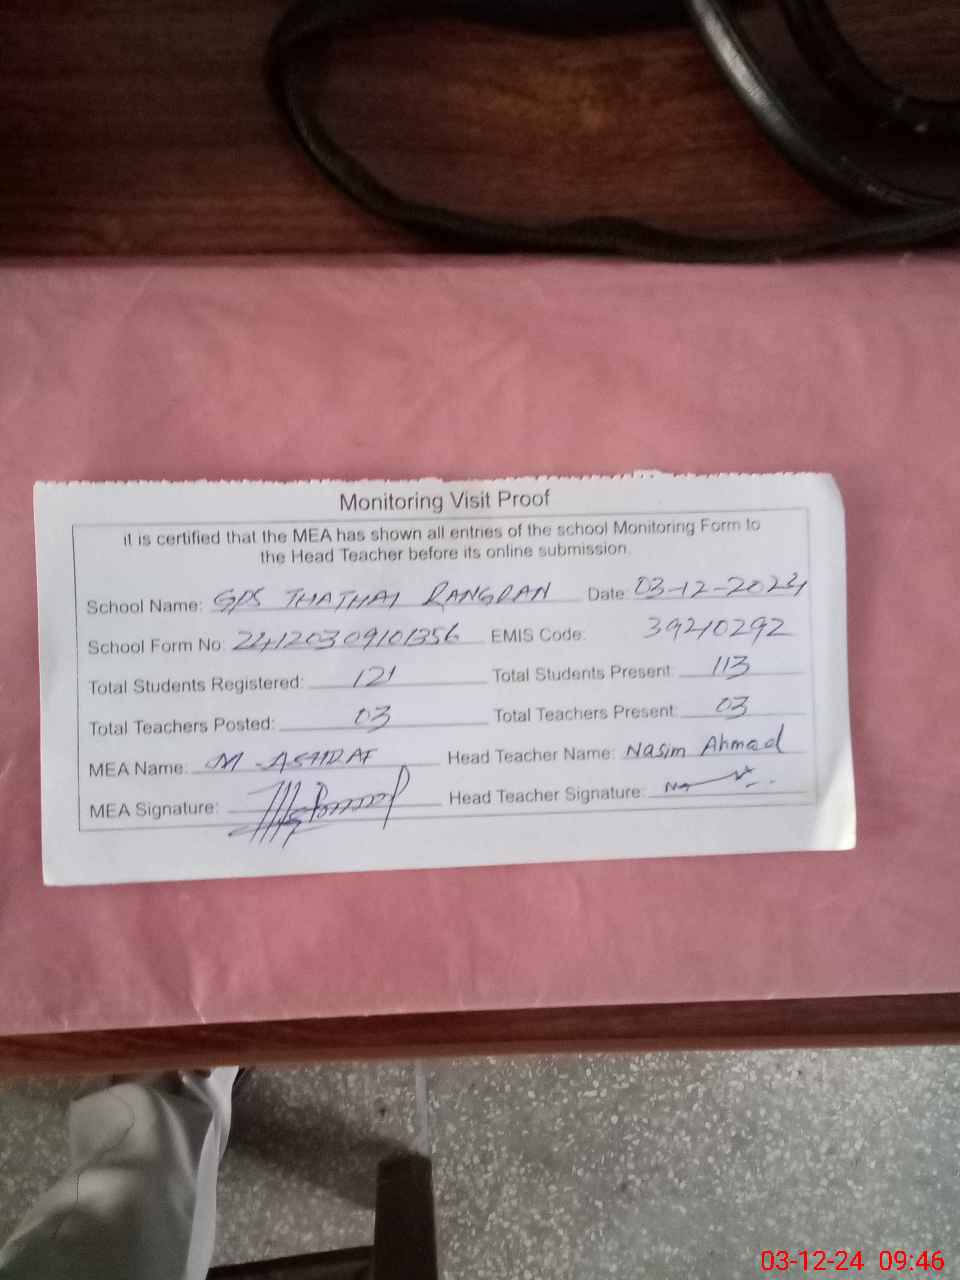 Monitoring Visit Proof
it is certified that the MEA has shown all entries of the school Monitoring Form to
the Head Teacher before its online submission.
School Name: GPS THATHAI RANGRAN Date: 03-12-2024
School Form No: 24120309101356 EMIS Code: 39210292
Total Students Registered: 121 Total Students Present: 113
Total Teachers Posted: 03 Total Teachers Present: 03
MEA Name: M. ASHRAF Head Teacher Name: Nasim Ahmad
MEA Signature: Head Teacher Signature:
03-12-24 09:46